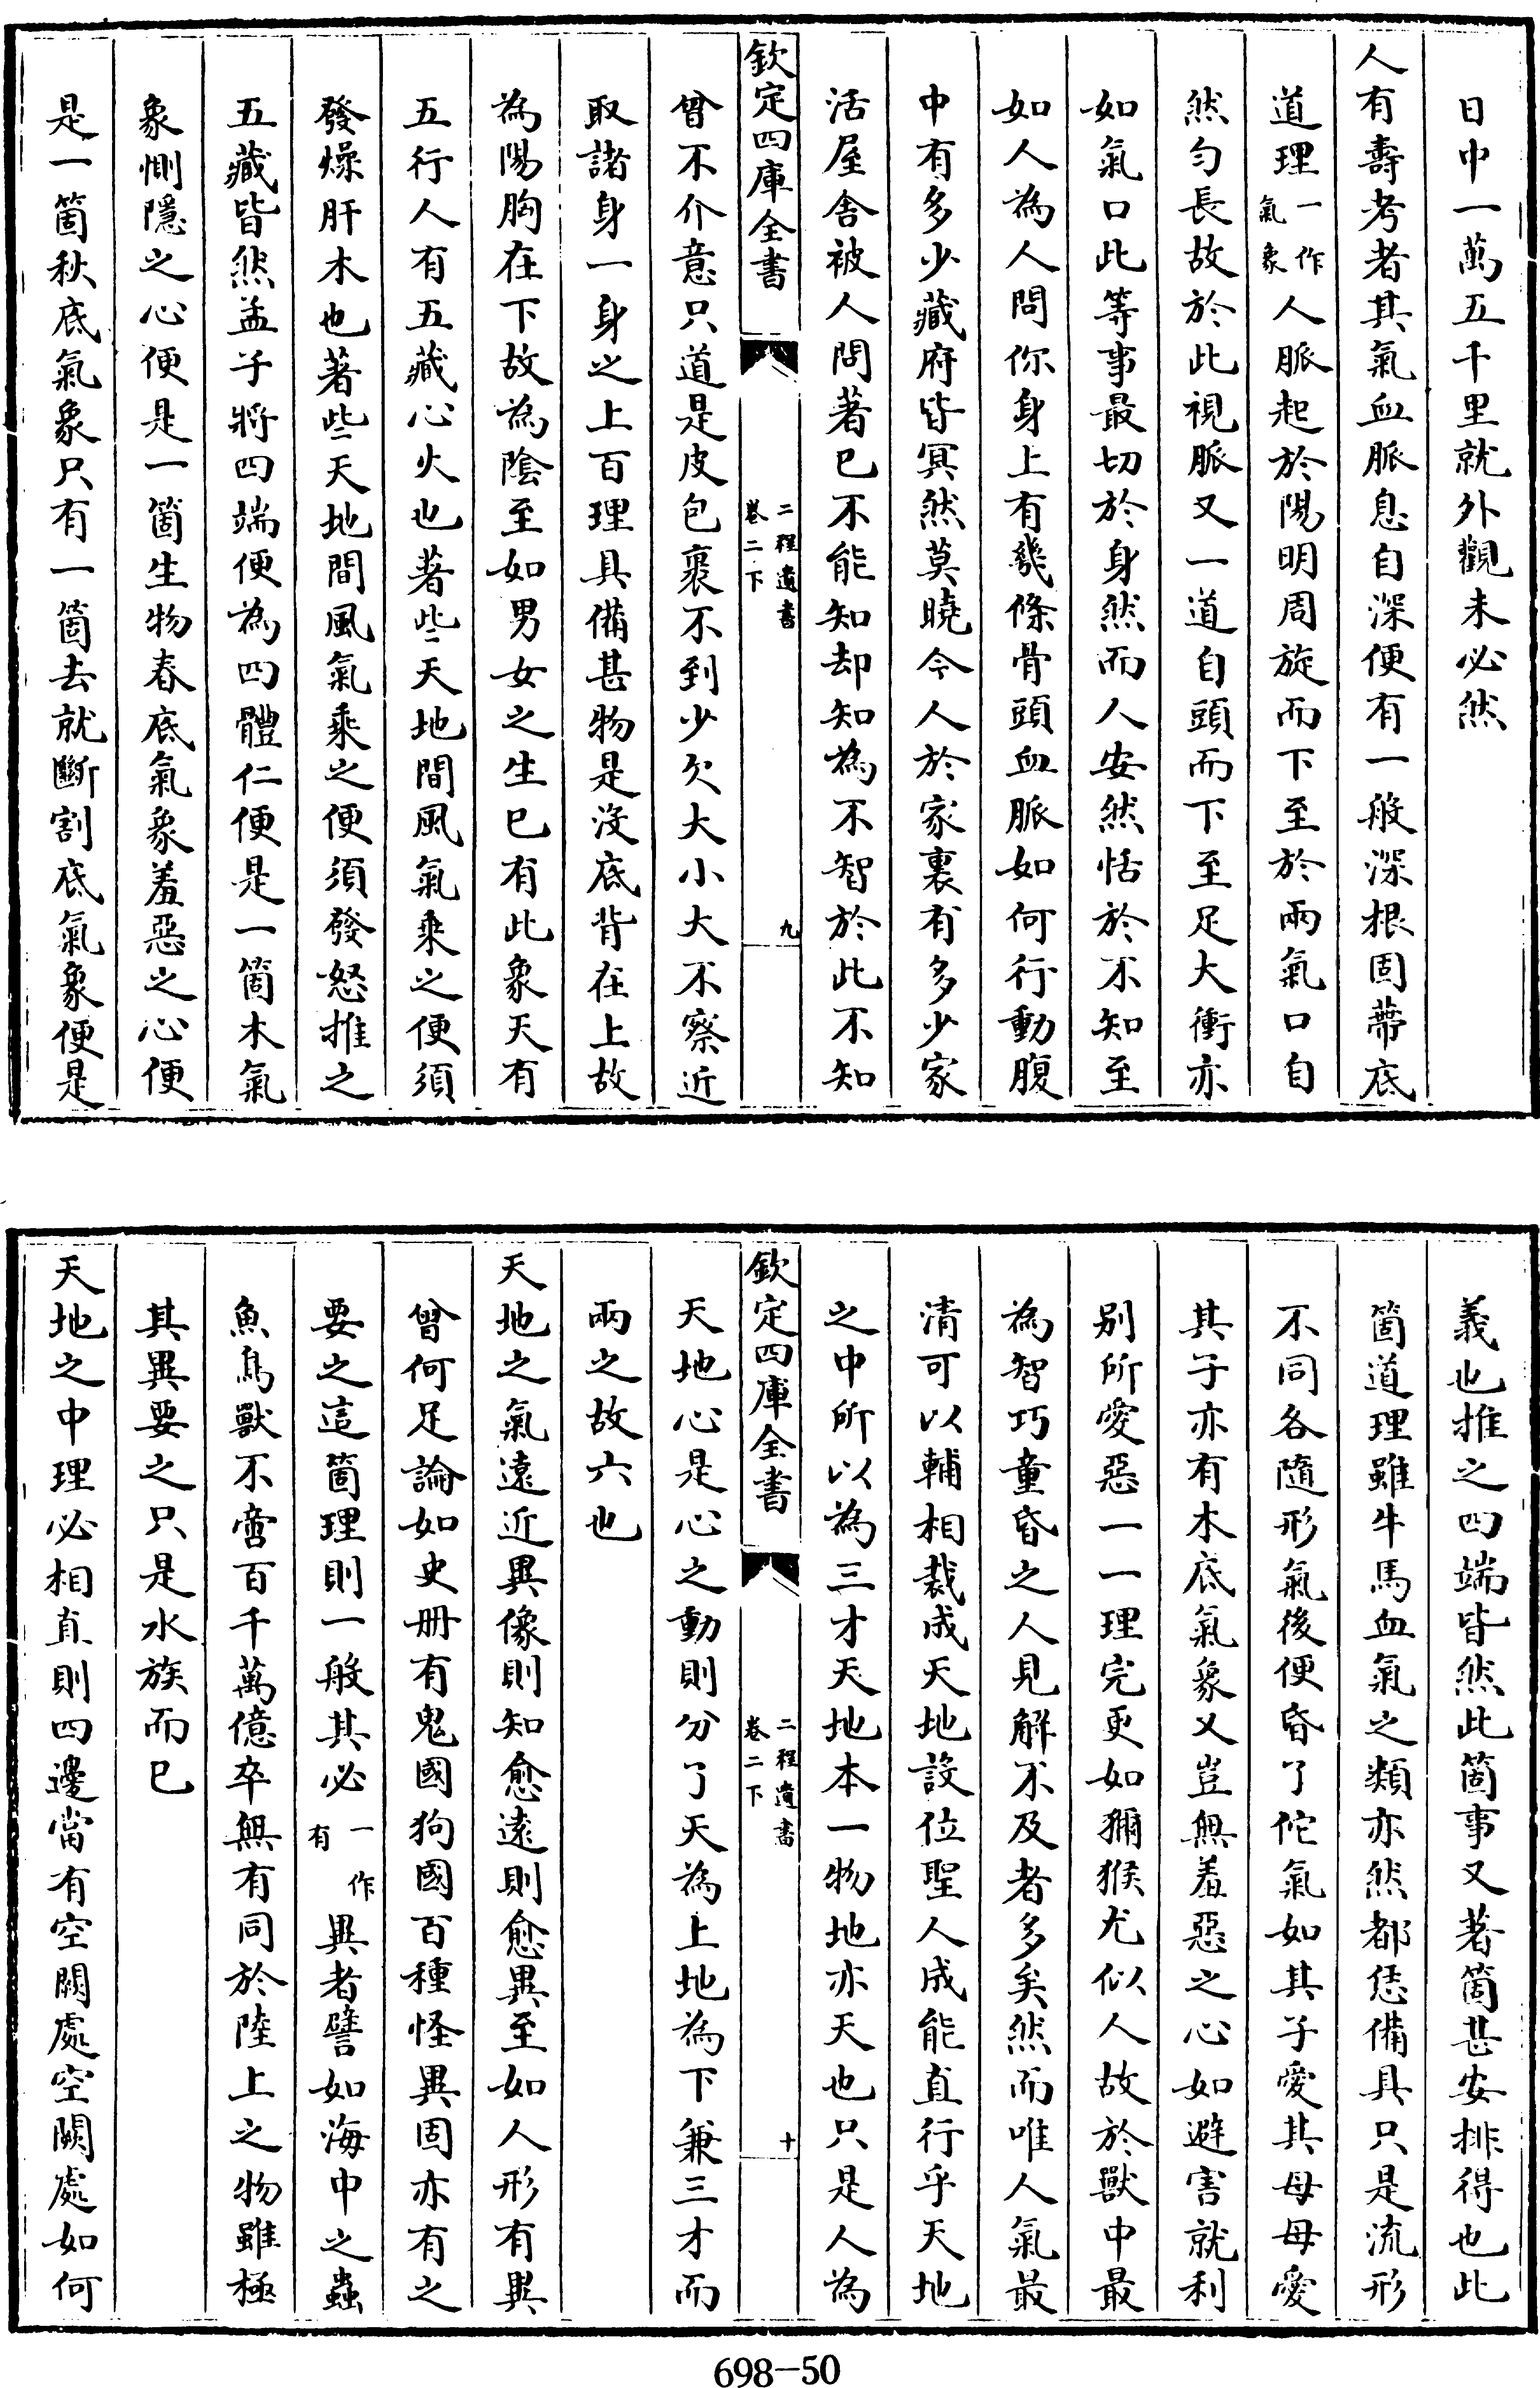 日中一萬五千里就外觀未必然
人有壽考者其氣血脈息自深便有一般深根固蔕底
道理一作氣象人脈起於陽明周旋而下至於兩氣口自
然勻長故於此視脈又一道自頭而下至足大衝亦
如氣口此等事最切於身然而人安然恬於不知至
如人為人問你身上有幾條骨頭血脈如何行動腹
中有多少藏府皆冥然莫曉今人於家裏有多少家
活屋舍被人問著已不能知却知為不智於此不知
欽定四庫全書
二程遺書
卷二下
九
曾不介意只道是皮包裹不到少欠大小大不察近
取諸身一身之上百理具備甚物是沒底背在上故
為陽胸在下故為陰至如男女之生已有此象天有
五行人有五藏心火也著些天地間風氣乘之便須
發燥肝木也著些天地間風氣乘之便須發怒推之
五藏皆然孟子將四端便為四體仁便是一箇木氣
象惻隱之心便是一箇生物春底氣象羞惡之心便
是一箇秋底氣象只有一箇去就斷割底氣象便是
義也推之四端皆然此箇事又著箇甚安排得也此
箇道理雖牛馬血氣之類亦然都恁備具只是流形
不同各隨形氣後便昏了佗氣如其子愛其母母愛
其子亦有木底氣象又豈無羞惡之心如避害就利
别所愛惡一一理完更如獮猴尤似人故於獸中最
為智巧童昏之人見解不及者多矣然而唯人氣最
清可以輔相裁成天地設位聖人成能直行乎天地
之中所以為三才天地本一物地亦天也只是人為
欽定四庫全書
二程遺書
卷二下
十
天地心是心之動則分了天為上地為下兼三才而
兩之故六也
天地之氣遠近異像則知愈遠則愈異至如人形有異
曾何足論如史册有鬼國狗國百種怪異固亦有之
要之這箇理則一般其必一作有異者譬如海中之蟲
魚鳥獸不啻百千萬億卒無有同於陸上之物雖極
其異要之只是水族而已
天地之中理必相直則四邊當有空闕處空闕處如何
698-50